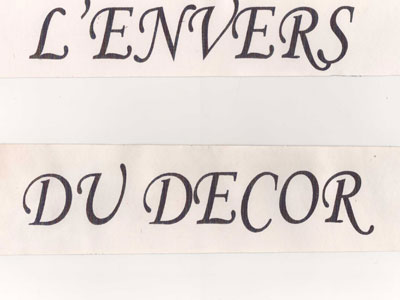 L'ENVERS
DU DECOR